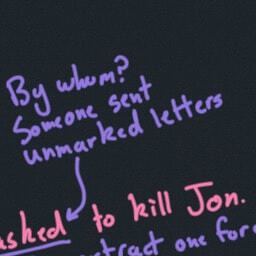 By whom?
Someone sent
unmarked letters
asked to kill Jon.
one for